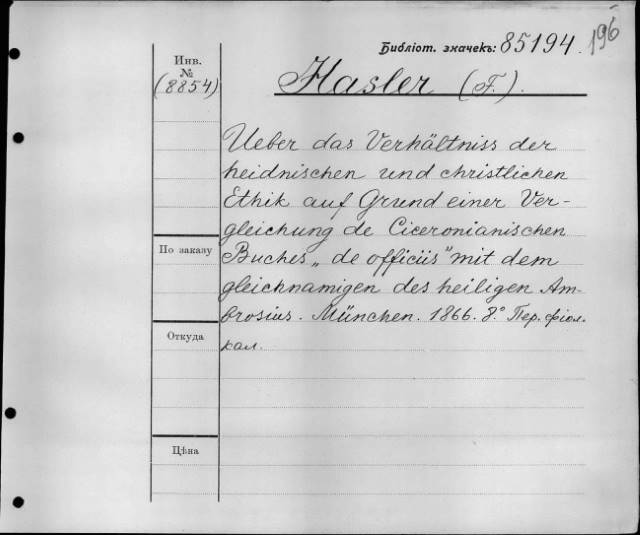 Библіот. значекъ: 85194. 196
Инв.
№
(8854)
Hasler (F.).
Ueber das Verhältniss der
heidnischen und christlichen
Ethik auf Grund einer Ver-
gleichung de Ciceronianischen
Buches „de officiis" mit dem
gleichnamigen des heiligen Am-
brosius. München. 1866. 8.° Пер. фіол.
кал.
По заказу
Откуда
Цѣна